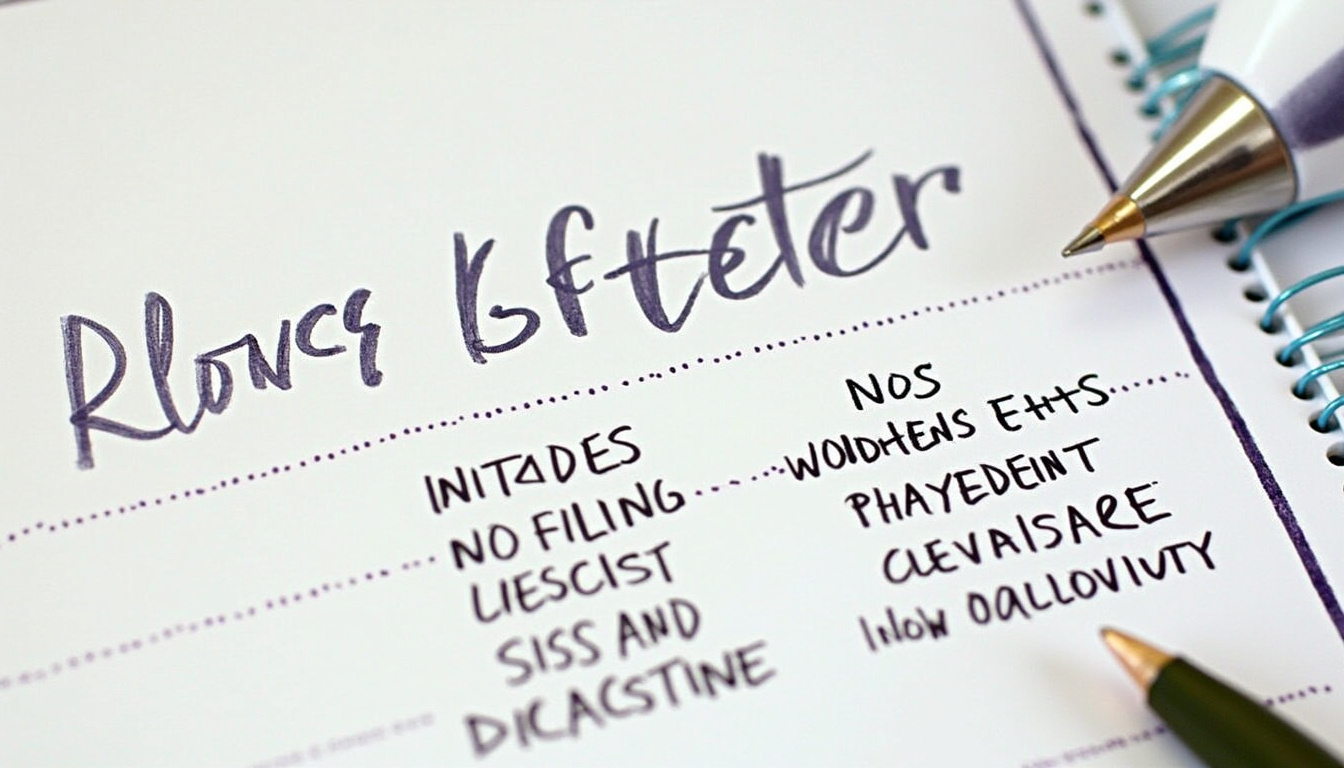 Rlovcg Bfteter
INITADES
NO FILING
LIESCIST
SISS AND
DICACSTINE
NOS
WOIDHENS EHtS
PHAYEDEINT
CLEVAISARE
INOW OALLOVIUTY